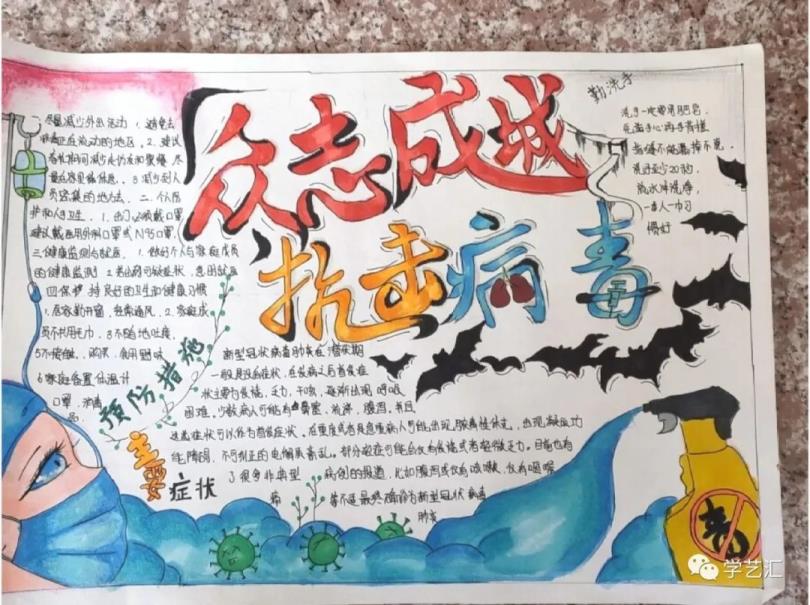 众志成城
抗击病毒
勤洗手
洗手一定要用肥皂
流水冲洗净
一家人一巾习
惯好
尽量减少外出活动 1. 避免去
疾病正在流动的地区。2. 建议
春节期间减少走访亲友和聚餐，尽
量在家里休息。3. 减少到人
员密集的地方去。二. 个人防
护和个人卫生。1. 出门必须戴口罩
建议戴医用外科口罩或N95口罩。
三健康监测与就医。1. 做好个人与家庭成员
的健康监测 2. 若出现可疑症状，
四保护持良好的卫生和健康习惯
1. 居家勤开窗，经常通风。2. 家庭成
员不共用毛巾。3. 不随地吐痰
5不接触、购买、食用野味
6家庭备置体温计
口罩，消毒
品。
预防措施
主要
症状
新型冠状病毒肺炎在潜伏期
一般是没有症状，在发病之后首发症
状主要为发烧，乏力，干咳，逐渐出现呼吸
困难，少数病人可能有鼻塞，流涕，腹泻，并且
这些症状可以作为首发症状。在重度或者是危重病人可能出现脓毒性休克，出现凝血功
能障碍，不可纠正的电解质紊乱。部分病
了很多非典型
病例的报道，比如腹泻或仅有咳嗽，仅有咽喉
痛
等不适最终确诊为新型冠状病毒
肺炎
毒
学艺汇